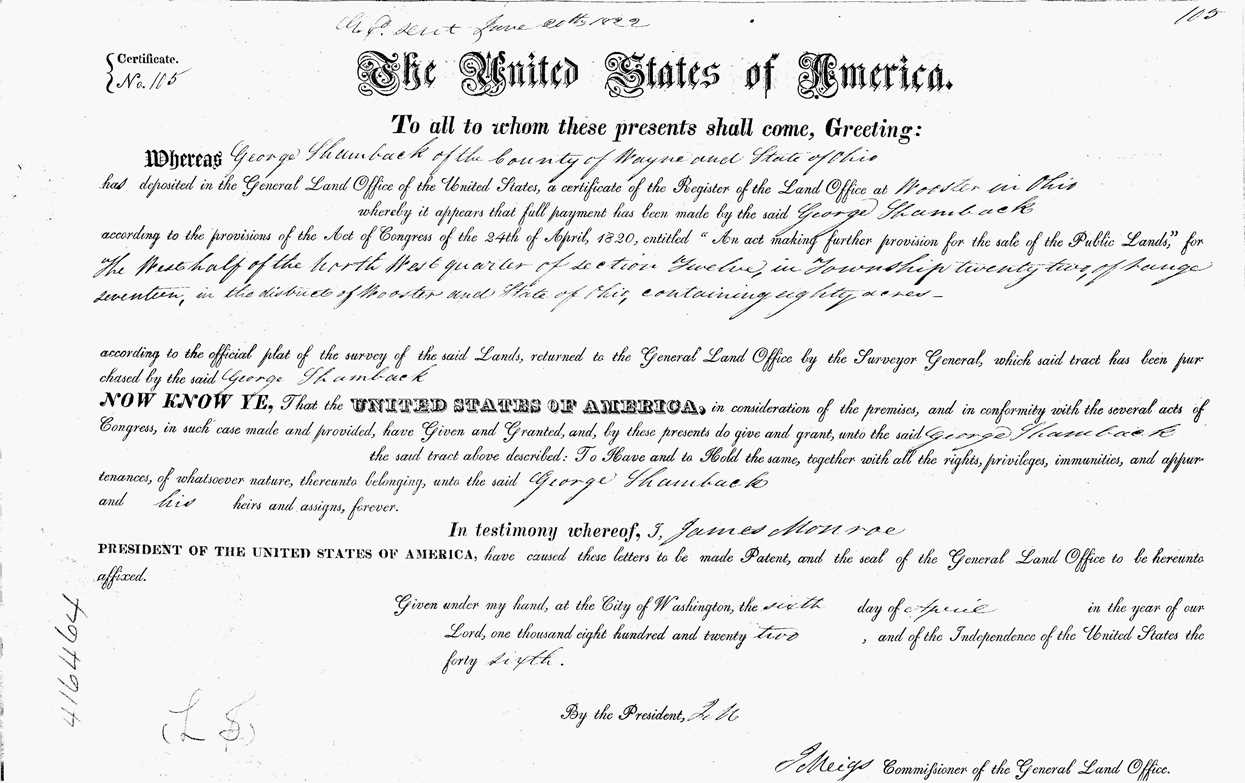 sent June 20th 1822
105
Certificate.
No. 105
The United States of America.
To all to whom these presents shall come, Greeting:
Whereas George Shamback of the County of Wayne and State of Ohio
has deposited in the General Land Office of the United States, a certificate of the Register of the Land Office at Wooster in Ohio
whereby it appears that full payment has been made by the said George Shamback
according to the provisions of the Act of Congress of the 24th of April, 1820, entitled “An act making further provision for the sale of the Public Lands,” for
The West half of the North West quarter of section Twelve, in Township twenty two, of range
seventeen, in the district of Wooster and State of Ohio, containing eighty acres –
according to the official plat of the survey of the said Lands, returned to the General Land Office by the Surveyor General, which said tract has been pur
chased by the said George Shamback
NOW KNOW YE, That the UNITED STATES OF AMERICA, in consideration of the premises, and in conformity with the several acts of
Congress, in such case made and provided, have Given and Granted, and, by these presents do give and grant, unto the said George Shamback
the said tract above described: To Have and to Hold the same, together with all the rights, privileges, immunities, and appur
tenances, of whatsoever nature, thereunto belonging, unto the said George Shamback
and his heirs and assigns, forever.
In testimony whereof, I, James Monroe
PRESIDENT OF THE UNITED STATES OF AMERICA, have caused these letters to be made Patent, and the seal of the General Land Office to be hereunto
affixed.
Given under my hand, at the City of Washington, the sixth day of April in the year of our
Lord, one thousand eight hundred and twenty two , and of the Independence of the United States the
forty sixth.
416464
(L S)
By the President, J M
J Meigs Commissioner of the General Land Office.